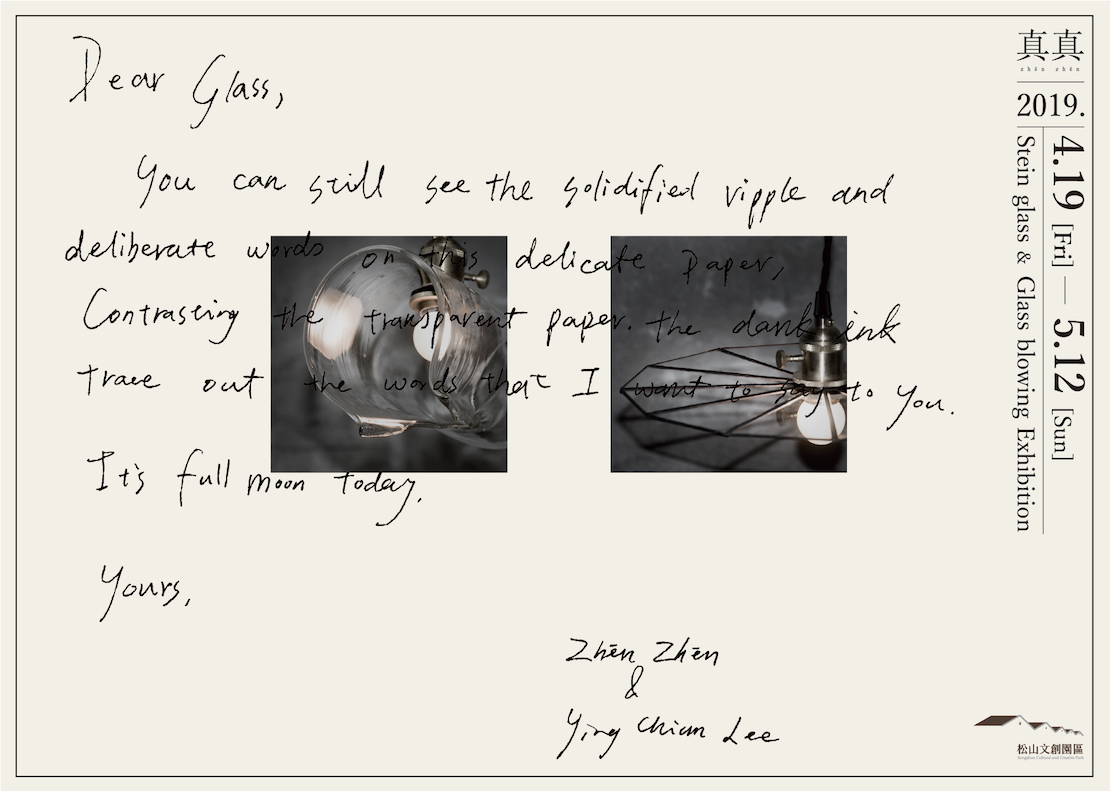 Dear Glass,
You can still see the solidified ripple and
deliberate words on this delicate paper,
Contrasting the transparent paper. the dark ink
trace out the words that I want to say to you.
It's full moon today.
Yours,
Zhēn Zhēn
&
Ying Chian Lee
真真
zhēn zhēn
2019.
4.19 [Fri] — 5.12 [Sun]
Stein glass & Glass blowing Exhibition
松山文創園區
Songshan Cultural and Creative Park